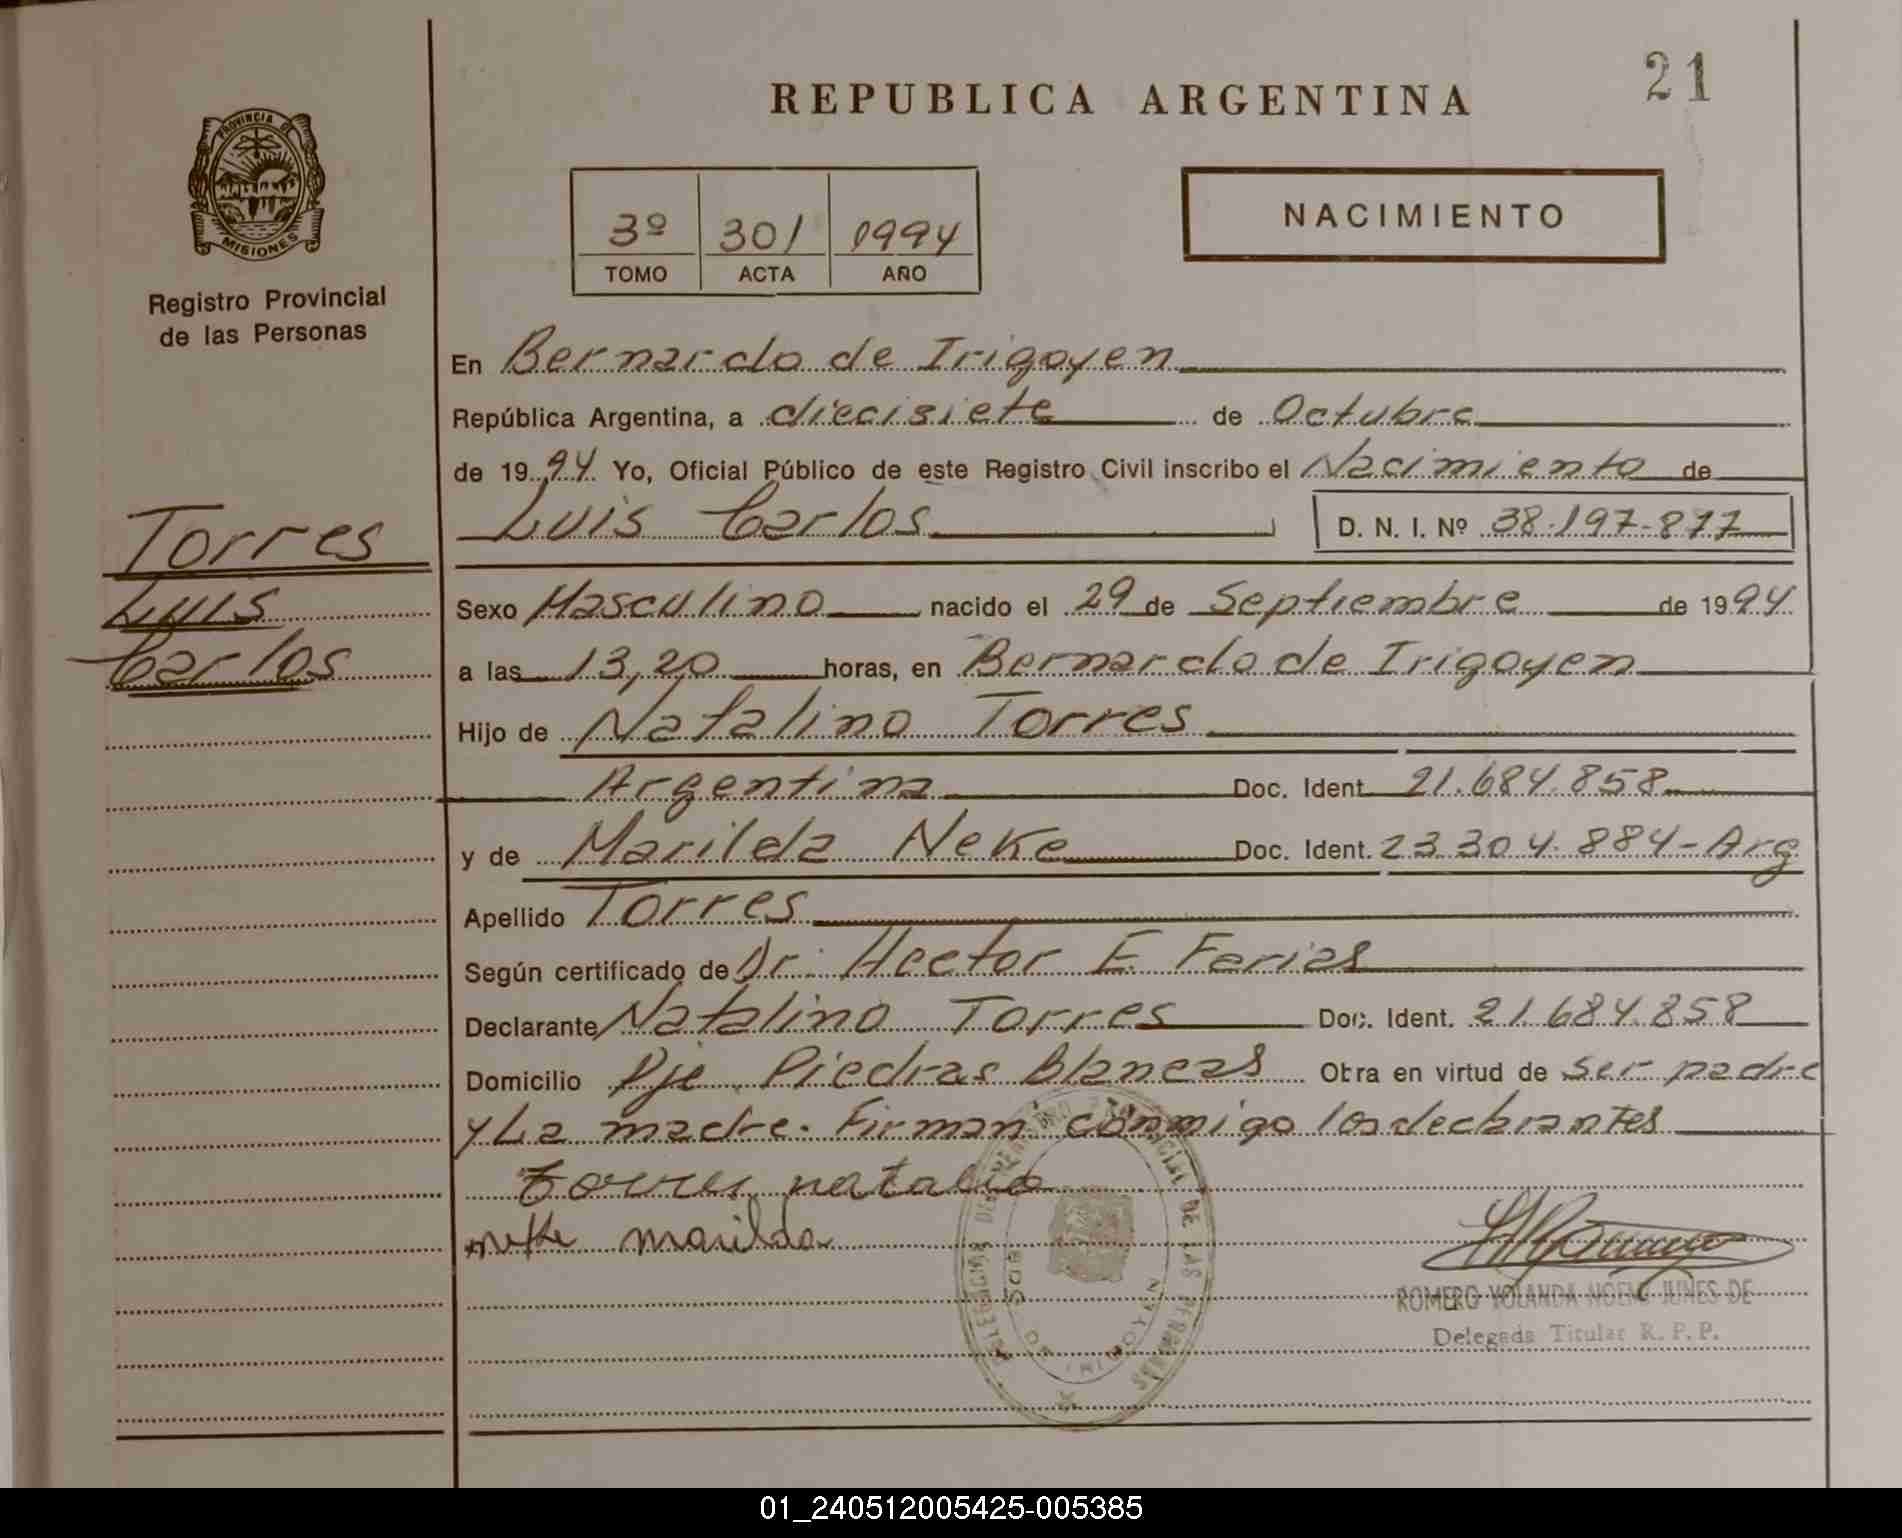 21
REPUBLICA ARGENTINA
PROVINCIA DE
MISIONES
Registro Provincial
de las Personas
3º 301 1994
TOMO ACTA AÑO
NACIMIENTO
En Bernardo de Irigoyen
República Argentina, a diecisiete de Octubre
de 1994 Yo, Oficial Público de este Registro Civil inscribo el Nacimiento de
Luis Carlos D. N. I. Nº 38.197-877
Torres
Luis
Carlos
Sexo Masculino nacido el 29 de Septiembre de 1994
a las 13,20 horas, en Bernardo de Irigoyen
Hijo de Natalino Torres
Argentina Doc. Ident. 21.684.858
y de Marilda Neke Doc. Ident. 23.304.884-Arg
Apellido Torres
Según certificado de Dr. Hector E. Farias
Declarante Natalino Torres Doc. Ident. 21.684.858
Domicilio Pje Piedras Blancas Obra en virtud de ser padre
y La madre. Firman conmigo los declarantes
torres
marilda
DE LAS PERSONAS
DE IRIGOYEN
ROMERO YOLANDA NOEMI JUNES DE
Delegada Titular R. P. P.
01_240512005425-005385